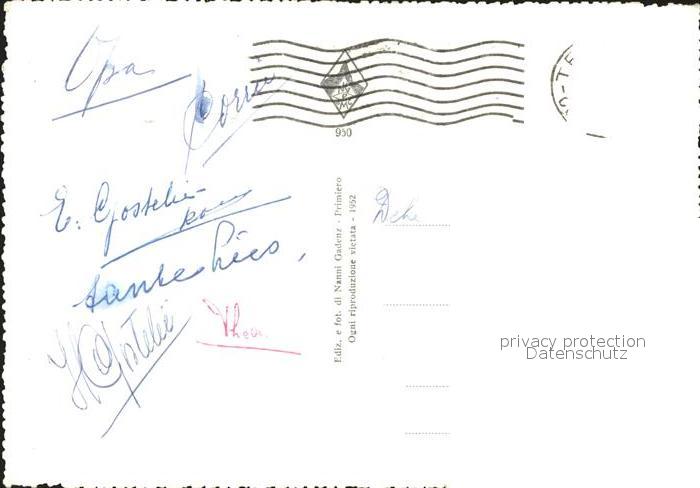 Opa
E. Gostelie
tante Lies,
H Gostelie
Thea.
950
Ediz. e fot. di Nanni Gadenz - Primiero
Ogni riproduzione vietata - 1952
privacy protection
Datenschutz